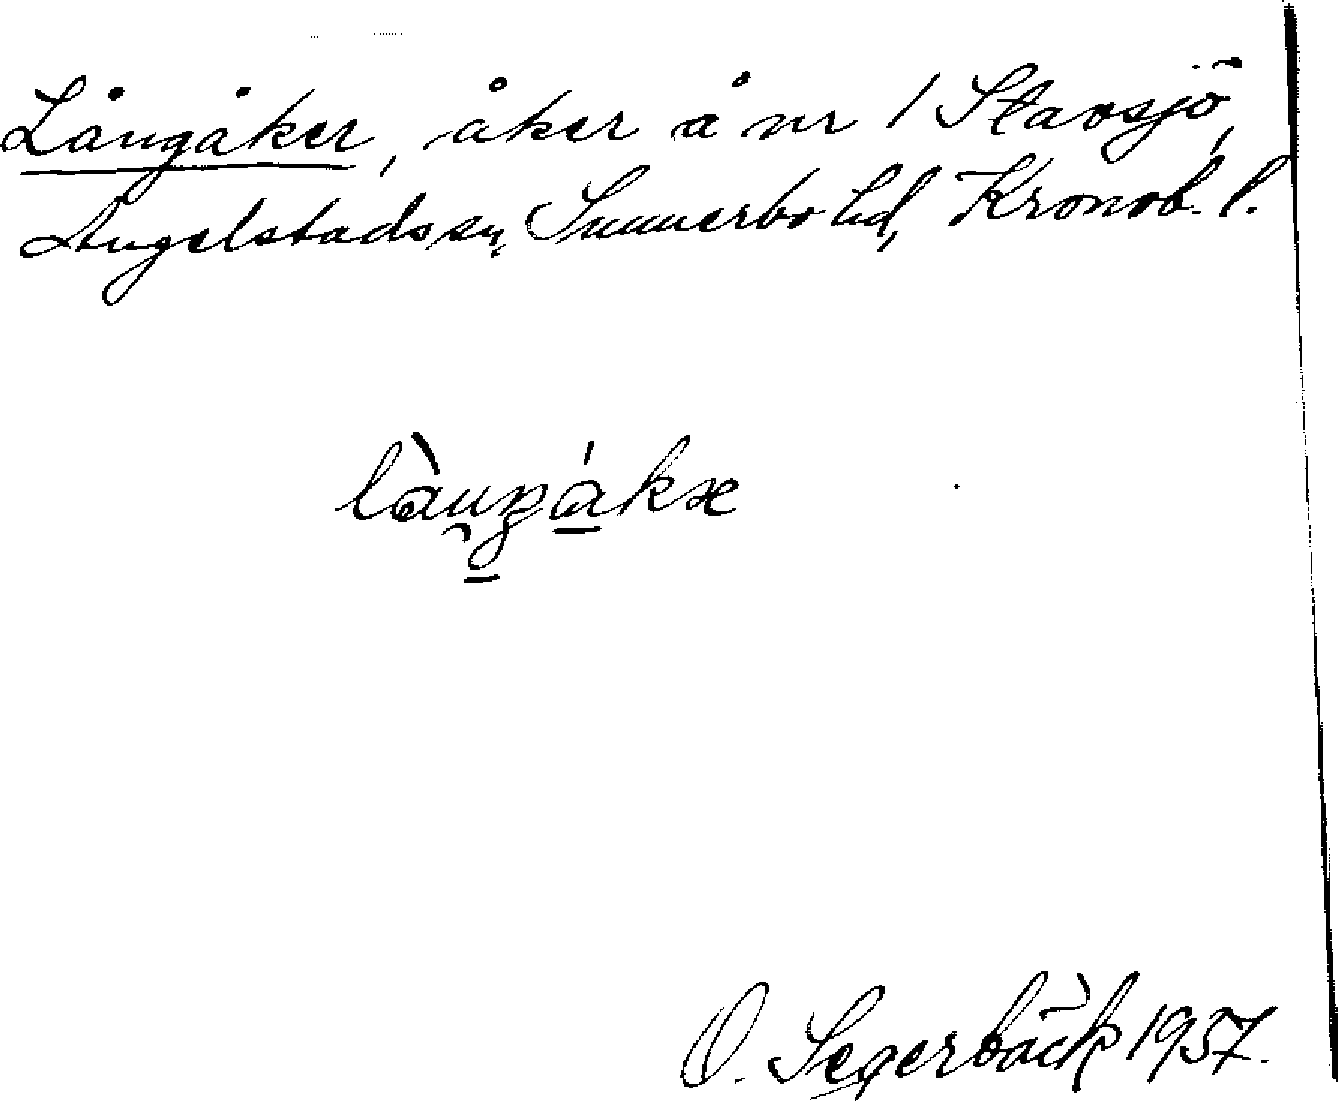 Långåker, åker å nr 1 Stavsjö,
Angelstads sn, Sunnerbo hd, Kronob. l.
O. Segerbäck 1957.